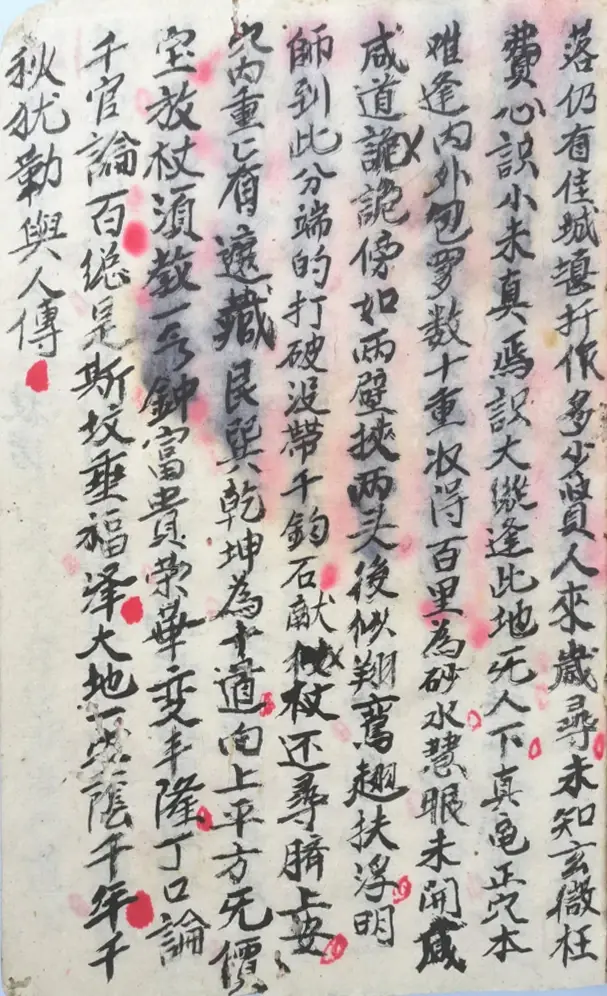 落仍有佳城堰折作多少賢人來歲尋未知玄微枉
費心識小未真焉識大縱逢此地无人下真龟正穴本
难逢内外包罗数十重収得百里為砂水慧眼未開咸
咸道詭詭傍如两壁挾两头後似翔鸞翅扶浮明
師到此分端的打破没帶千鈞石献杖还尋臍上安
穴内重上有遮藏艮巽乾坤為十道向上平方无價
宝放杖須教一亏鈡富貴荣華变丰隆丁口論
千官論百絕是斯坟垂福泽大地一穴蔭千年千
秋犹勒與人傳